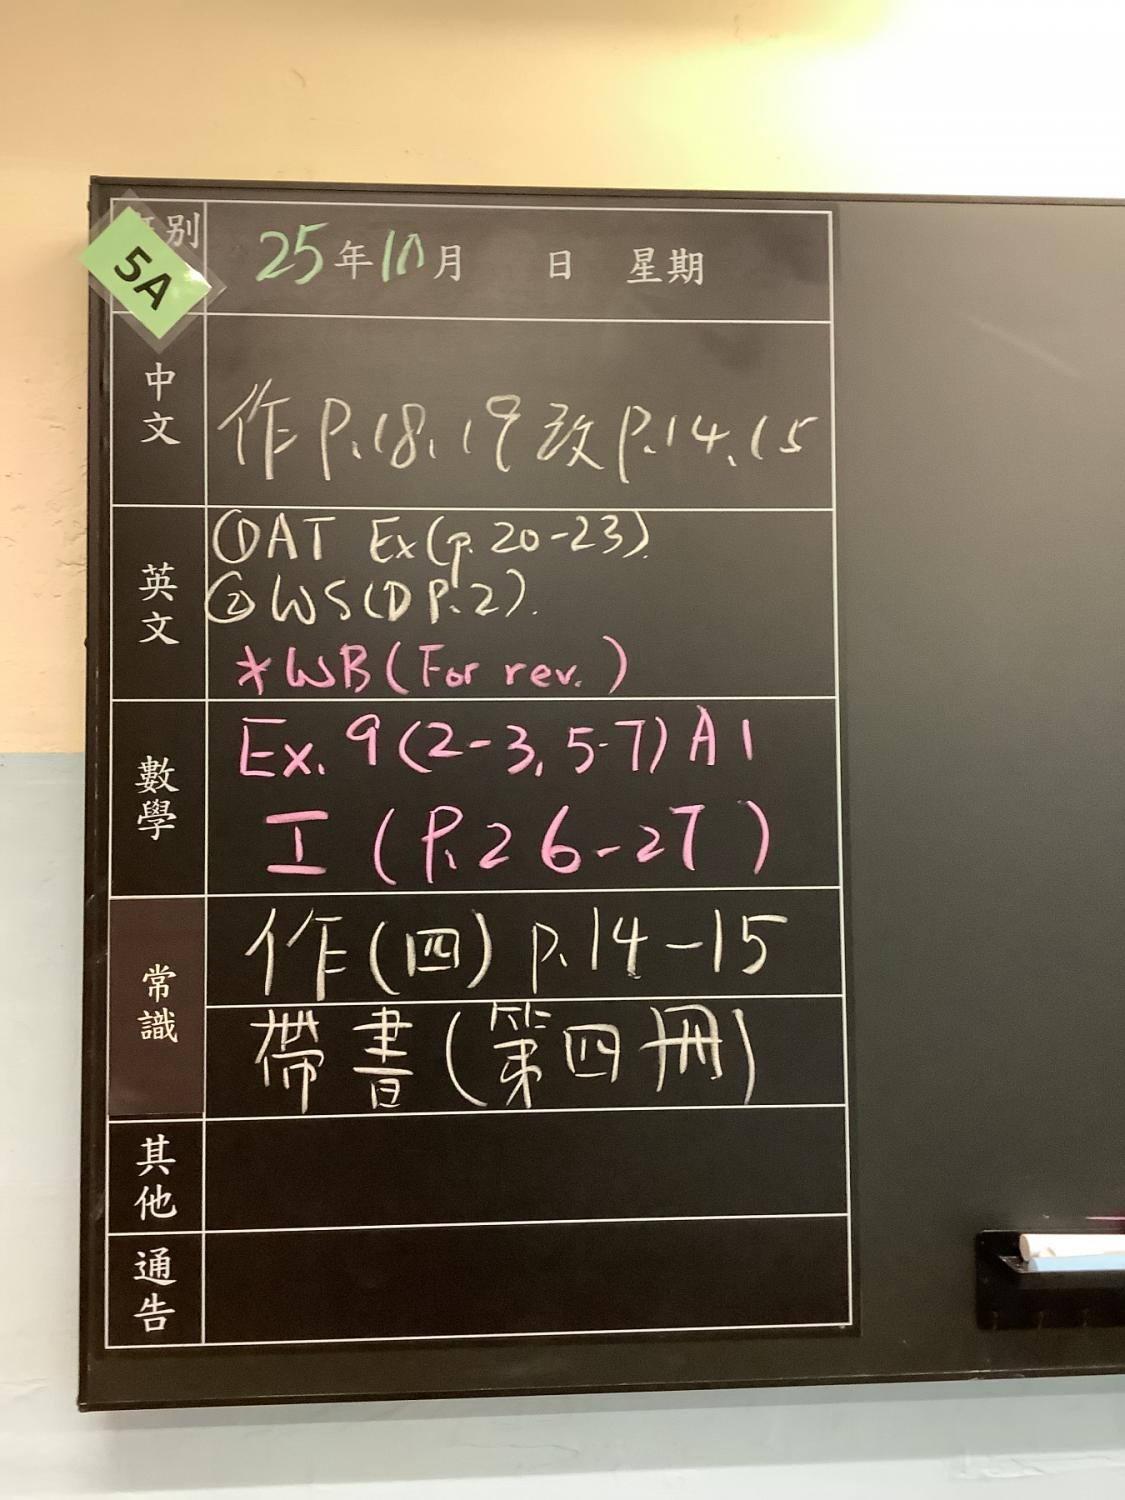 別
5A
25年10月 日 星期
中文
作 P.18,19 改 p.14,15
英文
①DAT Ex(p.20-23).
②WS(D P.2).
*WB(For rev.)
數學
Ex. 9(2-3,5-7) A1
工 (P.26-27)
常識
作(四) p.14-15
帶書(第四冊)
其他
通告